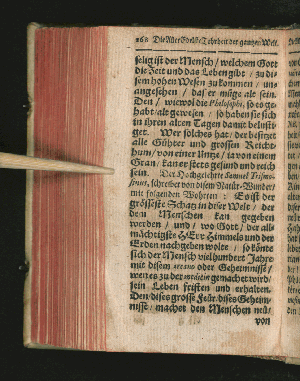 262 Die Aller Edelste Tohrheit der gantzen Welt.
selig ist der Mensch / welchem Gott
die Zeit und das Leben gibt / zu di-
sem hohen Wesen zu kommen / un-
angesehen / das er müge alt sein.
Den / wiewol die Philosophi, so es ge-
habt / alt gewesen / so haben sie sich
in ihren alten Tagen damit belusti-
get. Wer solches hat / der besitzet
alle Gühter und grossen Reicht-
hum / von einer Untze / ia von einem
Gran / kan er stets gesund und reich
sein. Der Hochgelehrte Samuel Trismo-
sinus, schreibet von disem Natur-Wunder /
mit folgenden Wohrten: Es ist der
grösseste Schatz in diser Welt / der
dem Menschen kan gegeben
werden / und / wo Gott / der all-
mächtigste HErr Himmels und der
Erden nachgeben wolte / so könte
sich der Mensch viel hundert Jahre
mit disem arcano oder Geheimnisse /
wen es zu der medicin gemacht wird /
sein Leben fristen und erhalten.
Den dises grosse Feur, dises Geheim-
nisse / machet den Menschen neu
von